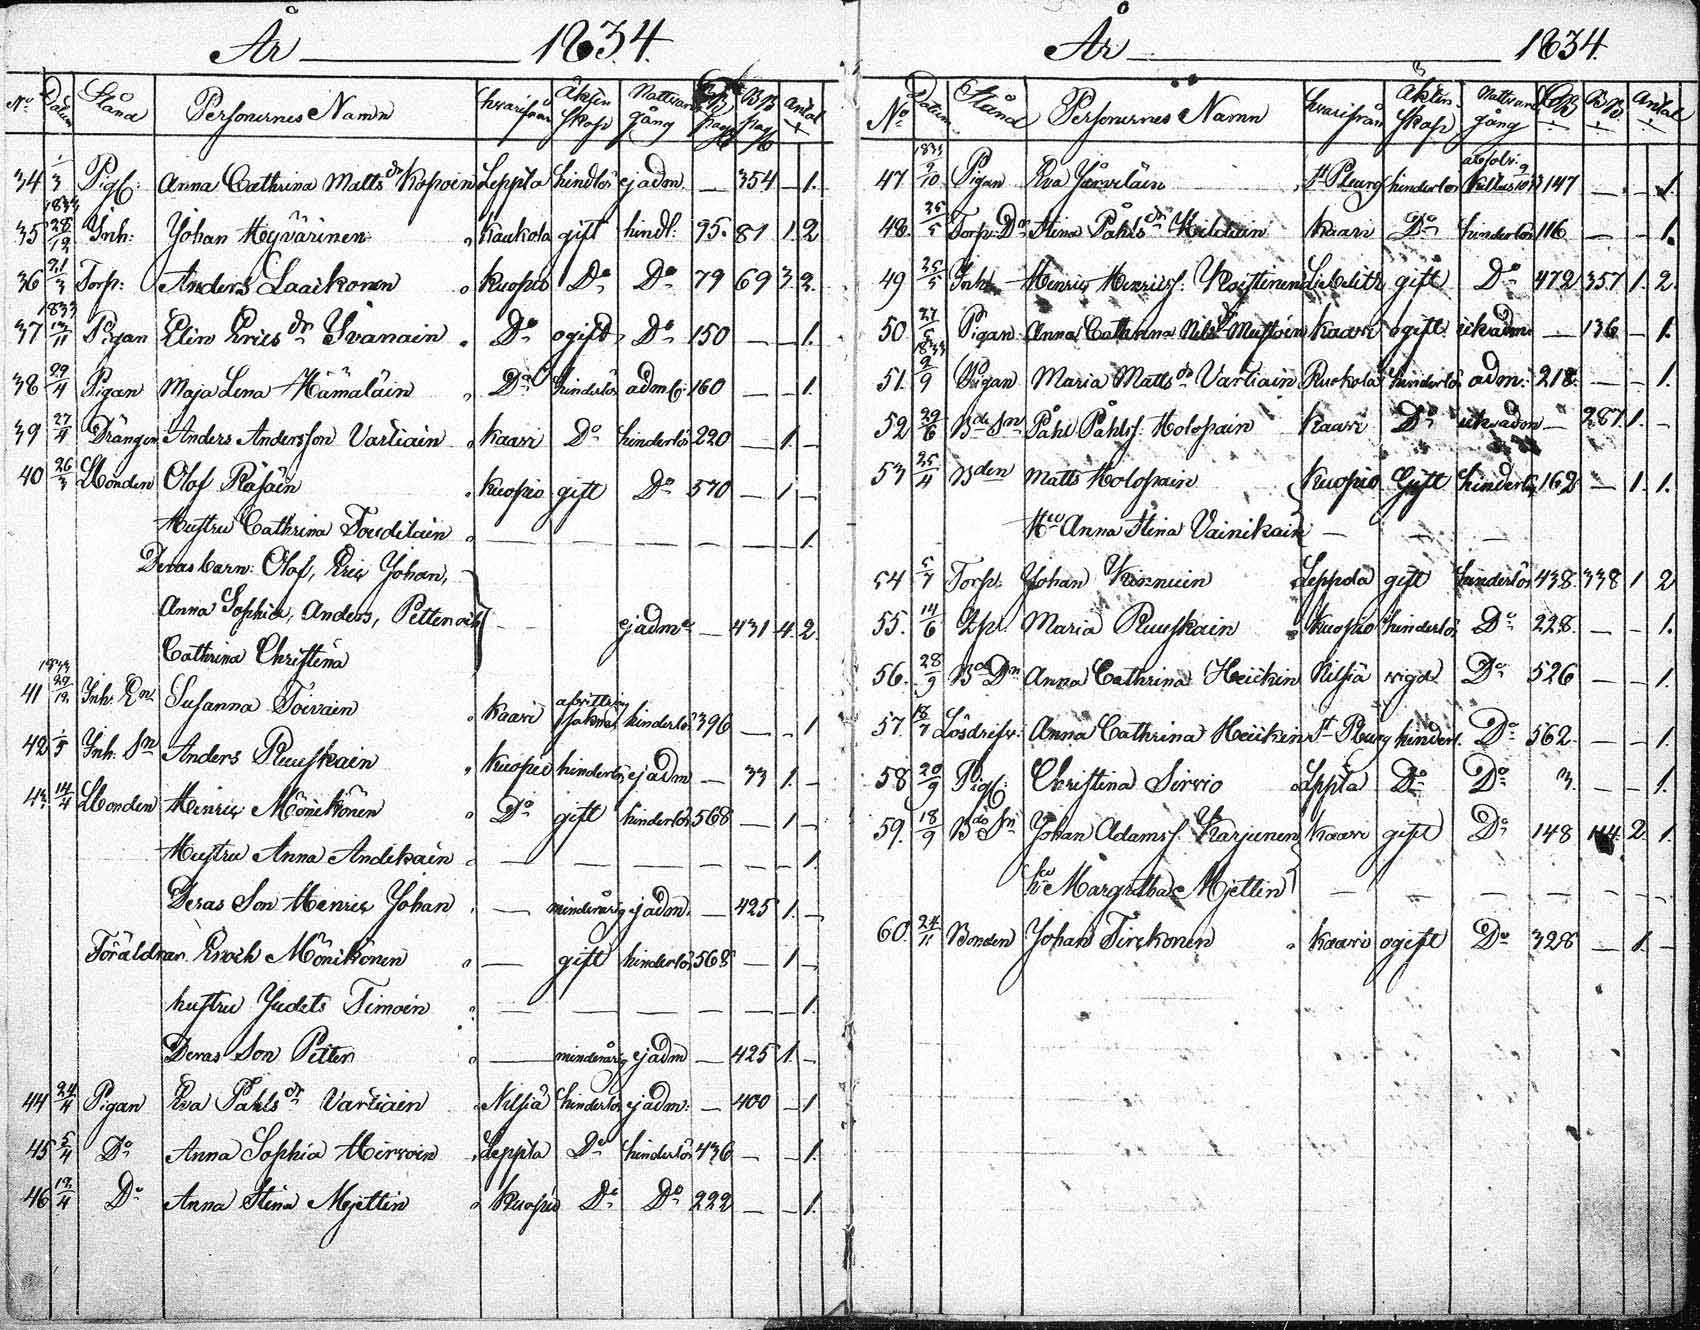 År 1834.
No Datum Stånd Personernes Namn hvarifrån Äktenskap Nattvardsgång pag pag Antal
34 1/3 Pigf: Anna Cathrina Matts dr Kopoin Leppla hindlös ej adm. — 354 — 1.
1833
35 28/12 Inh: Johan Hyvärinen " Kaukola gift hindl: 95. 81 1 2
36 21/3 Torp: Anders Laaikonen " Kuopio Do Do 79 69 3. 2.
1833
37 13/11 Pigan Elin Erics dr Ivanain " Do ogift Do 150 — — 1.
38 29/4 Pigan Maja Lena Hämäläin " Do hinderlös adm: 160 — — 1.
39 27/4 Drängen Anders Andersson Vartiain " Kaavi Do hinderlös 220 — 1. —
40 26/3 Bonden Olof Räsäin " Kuopio gift Do 570 — 1 —
Hustru Cathrina Toudilain " — — — — — — 1.
Deras barn: Olof, Eric Johan,
Anna Sophia, Anders, Petter och — — ej adm — 431 4. 2.
Cathrina Christina
1833
41 29/12 Inh: En Susanna Toivain " Kaavi afvittring saknas hinderlös 396 — — 1
42 1/5 Inh: Sn Anders Ruuskain " Kuopio hinderlös ej adm — 33 1. —
43 14/4 Bonden Henric Mönikönen " Do gift hinderlös 568 — 1 —
Hustru Anna Andikain " — — — — — — 1.
Deras Son Henric Johan " — minderårig ej adm. — 425 1. —
Föräldrar Enoch Mönikönen " — gift hinderlös 568 — 1 —
hustru Judits Timoin " — — — — — — 1.
Deras Son Petter " — minderårig ej adm — 425 1. —
44 24/4 Pigan Eva Påhls dr Vartiain " Nilsiä hinderlös ej adm: — 400 — 1
45 5/4 Do Anna Sophia Hirvoin " Leppla Do hinderlös 436 — — 1.
46 12/4 Do Anna Stina Mjettin " Kuopio Do Do 222 — — 1.
År 1834.
No Datum Stånd Personernes Namn hvarifrån Äktenskap Nattvardsgång Antal
1833
47 9/10 Pigan Eva Järveläin " St Pburg hinderlös 147 — — 1.
48 25/5 Torp: Do Stina Påhls dr Kiiliäin Kaavi Do hinderlös 116 — — 1.
49 25/5 Inh: Henric Henrics. Koistinen Libelitz gift Do 472 357 1. 2.
50 27/5 Pigan Anna Catharina Nils dr Mustoin Kaavi ogift ick adm — 136 — 1.
1833
51. 9/9 Pigan Maria Matts dr Vartiain Ruokola hinderlös adm: 218. — — 1.
52 29/6 Bde Sn Påhl Påhls. Holopain Kaavi Do ick adm — 287 1. —
53 25/4 Bden Matts Holopain Kuopio Gift hinderlös 162 — 1. 1.
Hu Anna Stina Vainikain — — —
54 5/7 Torp: Johan Kinnuin Leppola gift hinderlös 438. 338 1 2
55. 14/6 Maria Ruuskain " Kuopio hinderlös Do 228. — — 1.
56. 28/9 Bde Dn Anna Cathrina Heickin Nilsiä vigd Do 526 — — 1.
57. 18/7 Lösdrifv: Anna Cathrina Heickin St Pburg hinderl. Do 562 — — 1.
58 20/9 Pigf: Christina Sirvio Leppla Do Do 3. — — 1.
59. 18/9 Bde Sn Johan Adams f. Karjunen Kaavi gift Do 148 144. 2. 1.
hu Margretha Mjettin — — — — — — —
60. 24/11 Bonden Johan Tirckonen " Kaavi ogift Do 328 — 1. —